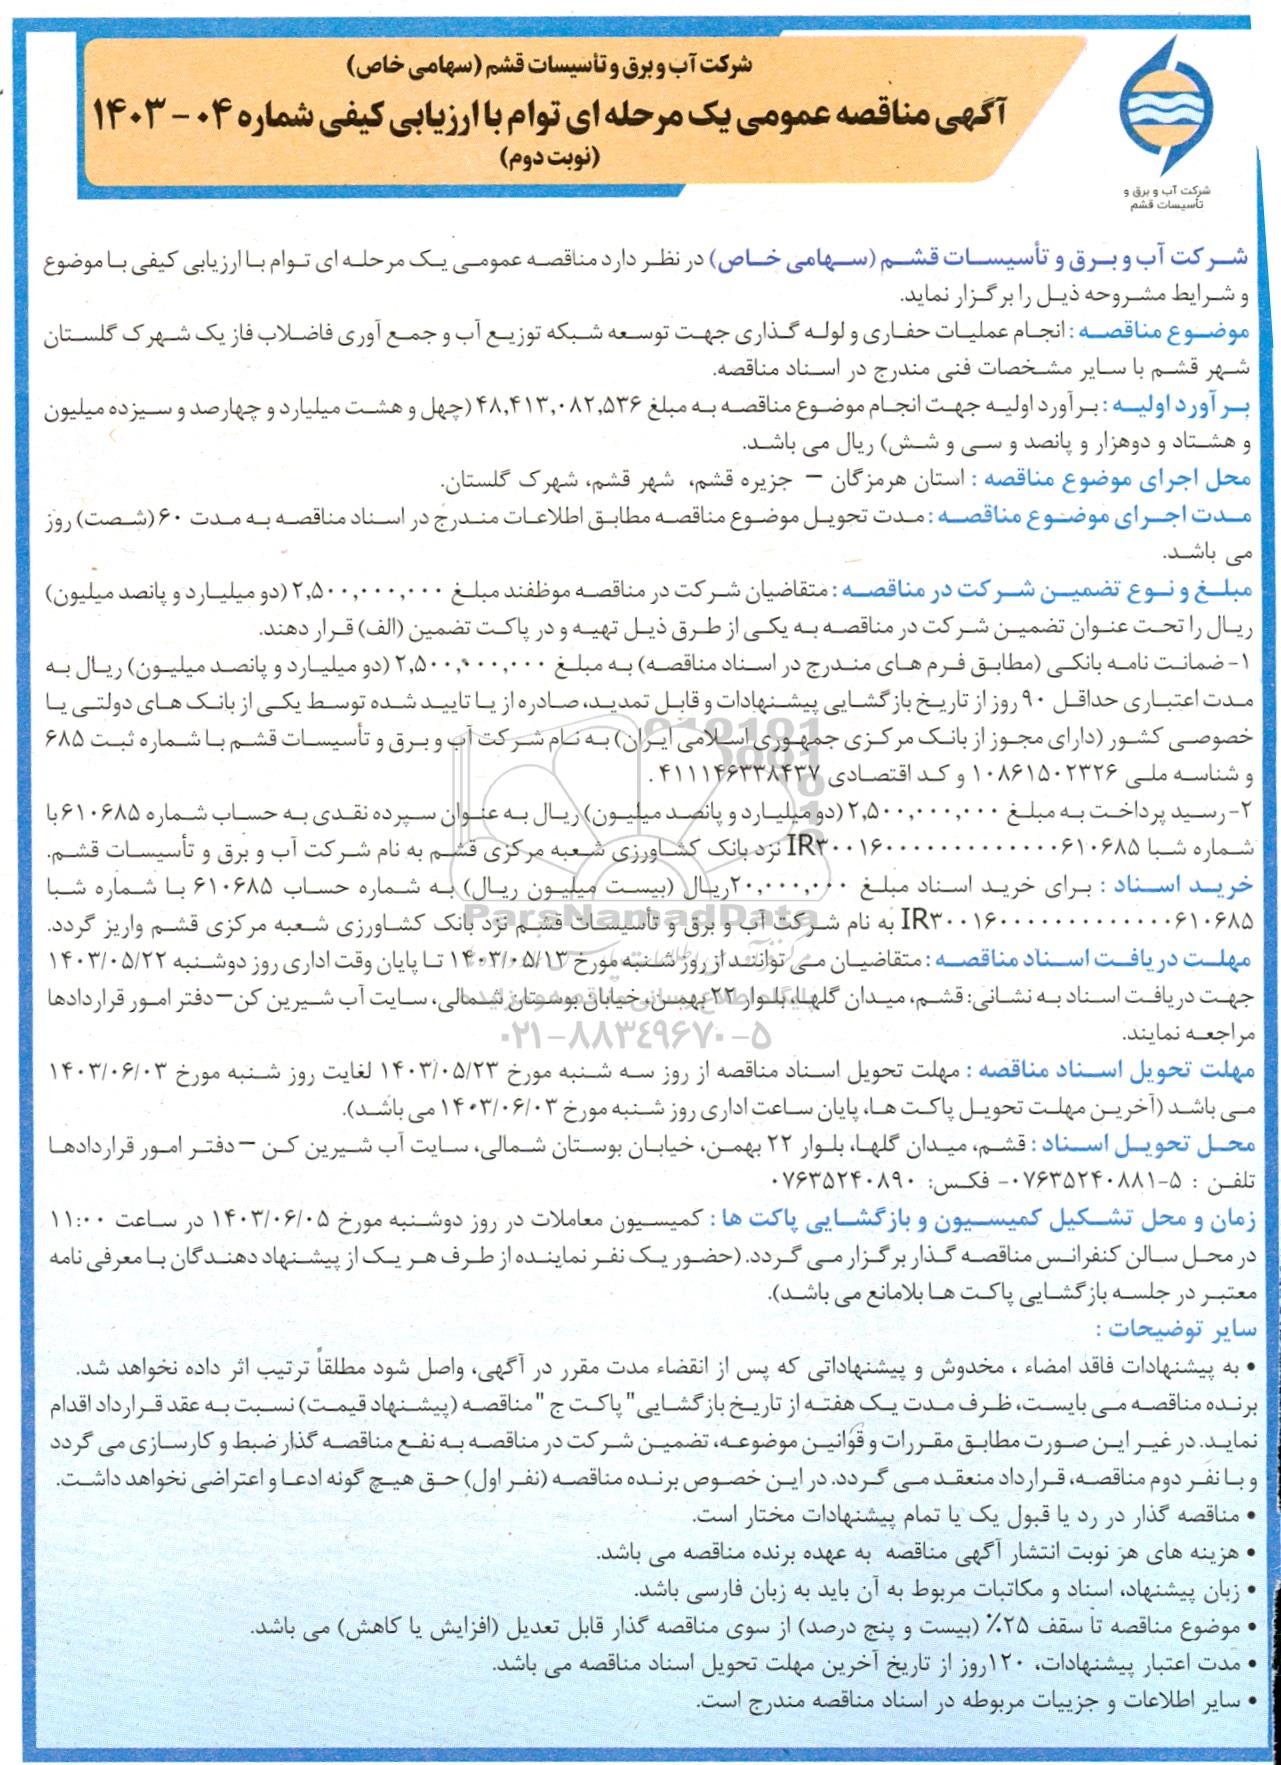 شرکت آب و برق و تأسیسات قشم (سهامی خاص)
آگهی مناقصه عمومی یک مرحله ای توام با ارزیابی کیفی شماره ۰۴ - ۱۴۰۳
(نوبت دوم)
شرکت آب و برق و
تأسیسات قشم
شرکت آب و برق و تأسیسات قشم (سهامی خاص) در نظر دارد مناقصه عمومی یک مرحله ای توام با ارزیابی کیفی با موضوع
و شرایط مشروحه ذیل را برگزار نماید.
موضوع مناقصه : انجام عملیات حفاری و لوله گذاری جهت توسعه شبکه توزیع آب و جمع آوری فاضلاب فاز یک شهرک گلستان
شهر قشم با سایر مشخصات فنی مندرج در اسناد مناقصه.
برآورد اولیه : برآورد اولیه جهت انجام موضوع مناقصه به مبلغ ۴۸,۴۱۳,۰۸۲,۵۳۶ (چهل و هشت میلیارد و چهارصد و سیزده میلیون
و هشتاد و دوهزار و پانصد و سی و شش) ریال می باشد.
محل اجرای موضوع مناقصه : استان هرمزگان – جزیره قشم، شهر قشم، شهرک گلستان.
مدت اجرای موضوع مناقصه : مدت تحویل موضوع مناقصه مطابق اطلاعات مندرج در اسناد مناقصه به مدت ۶۰ (شصت) روز
می باشد.
مبلغ و نوع تضمین شرکت در مناقصه : متقاضیان شرکت در مناقصه موظفند مبلغ ۲,۵۰۰,۰۰۰,۰۰۰ (دو میلیارد و پانصد میلیون)
ریال را تحت عنوان تضمین شرکت در مناقصه به یکی از طرق ذیل تهیه و در پاکت تضمین (الف) قرار دهند.
۱- ضمانت نامه بانکی (مطابق فرم های مندرج در اسناد مناقصه) به مبلغ ۲,۵۰۰,۰۰۰,۰۰۰ (دو میلیارد و پانصد میلیون) ریال به
مدت اعتباری حداقل ۹۰ روز از تاریخ بازگشایی پیشنهادات و قابل تمدید، صادره از یا تایید شده توسط یکی از بانک های دولتی یا
خصوصی کشور (دارای مجوز از بانک مرکزی جمهوری اسلامی ایران) به نام شرکت آب و برق و تأسیسات قشم با شماره ثبت ۶۸۵
و شناسه ملی ۱۰۸۶۱۵۰۲۳۲۶ و کد اقتصادی ۴۱۱۱۴۶۳۳۸۴۳۷ .
۲- رسید پرداخت به مبلغ ۲,۵۰۰,۰۰۰,۰۰۰ (دو میلیارد و پانصد میلیون) ریال به عنوان سپرده نقدی به حساب شماره ۶۱۰۶۸۵ با
شماره شبا IR۳۰۰۱۶۰۰۰۰۰۰۰۰۰۰۰۰۰۰۶۱۰۶۸۵ نزد بانک کشاورزی شعبه مرکزی قشم به نام شرکت آب و برق و تأسیسات قشم.
خرید اسناد : برای خرید اسناد مبلغ ۲۰,۰۰۰,۰۰۰ریال (بیست میلیون ریال) به شماره حساب ۶۱۰۶۸۵ با شماره شبا
IR۳۰۰۱۶۰۰۰۰۰۰۰۰۰۰۰۰۰۰۶۱۰۶۸۵ به نام شرکت آب و برق و تأسیسات قشم نزد بانک کشاورزی شعبه مرکزی قشم واریز گردد.
مهلت دریافت اسناد مناقصه : متقاضیان می توانند از روز شنبه مورخ ۱۴۰۳/۰۵/۱۳ تا پایان وقت اداری روز دوشنبه ۱۴۰۳/۰۵/۲۲
جهت دریافت اسناد به نشانی: قشم، میدان گلها، بلوار ۲۲ بهمن، خیابان بوستان شمالی، سایت آب شیرین کن–دفتر امور قراردادها
مراجعه نمایند.
مهلت تحویل اسناد مناقصه : مهلت تحویل اسناد مناقصه از روز سه شنبه مورخ ۱۴۰۳/۰۵/۲۳ لغایت روز شنبه مورخ ۱۴۰۳/۰۶/۰۳
می باشد (آخرین مهلت تحویل پاکت ها، پایان ساعت اداری روز شنبه مورخ ۱۴۰۳/۰۶/۰۳ می باشد).
محل تحویل اسناد : قشم، میدان گلها، بلوار ۲۲ بهمن، خیابان بوستان شمالی، سایت آب شیرین کن –دفتر امور قراردادها
تلفن : ۵-۰۷۶۳۵۲۴۰۸۸۱- فکس: ۰۷۶۳۵۲۴۰۸۹۰
زمان و محل تشکیل کمیسیون و بازگشایی پاکت ها : کمیسیون معاملات در روز دوشنبه مورخ ۱۴۰۳/۰۶/۰۵ در ساعت ۱۱:۰۰
در محل سالن کنفرانس مناقصه گذار برگزار می گردد. (حضور یک نفر نماینده از طرف هر یک از پیشنهاد دهندگان با معرفی نامه
معتبر در جلسه بازگشایی پاکت ها بلامانع می باشد).
سایر توضیحات :
• به پیشنهادات فاقد امضاء ، مخدوش و پیشنهاداتی که پس از انقضاء مدت مقرر در آگهی، واصل شود مطلقاً ترتیب اثر داده نخواهد شد.
برنده مناقصه می بایست، ظرف مدت یک هفته از تاریخ بازگشایی "پاکت ج" مناقصه (پیشنهاد قیمت) نسبت به عقد قرارداد اقدام
نماید. در غیر این صورت مطابق مقررات و قوانین موضوعه، تضمین شرکت در مناقصه به نفع مناقصه گذار ضبط و کارسازی می گردد
و با نفر دوم مناقصه، قرارداد منعقد می گردد. در این خصوص برنده مناقصه (نفر اول) حق هیچ گونه ادعا و اعتراضی نخواهد داشت.
• مناقصه گذار در رد یا قبول یک یا تمام پیشنهادات مختار است.
• هزینه های هر نوبت انتشار آگهی مناقصه به عهده برنده مناقصه می باشد.
• زبان پیشنهاد، اسناد و مکاتبات مربوط به آن باید به زبان فارسی باشد.
• موضوع مناقصه تا سقف ۲۵٪ (بیست و پنج درصد) از سوی مناقصه گذار قابل تعدیل (افزایش یا کاهش) می باشد.
• مدت اعتبار پیشنهادات، ۱۲۰روز از تاریخ آخرین مهلت تحویل اسناد مناقصه می باشد.
• سایر اطلاعات و جزییات مربوطه در اسناد مناقصه مندرج است.
ParsNamadData
۰۲۱-۸۸۳۴۹۶۷۰-۵